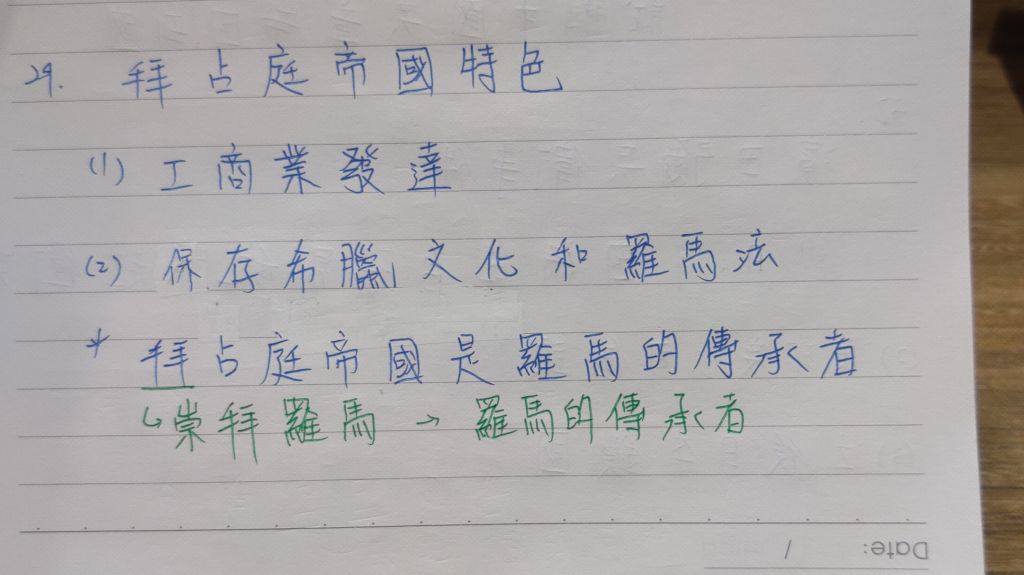 29. 拜占庭帝國特色
(1) 工商業發達
(2) 保存希臘文化和羅馬法
* 拜占庭帝國是羅馬的傳承者
↳崇拜羅馬 → 羅馬的傳承者
Date: /